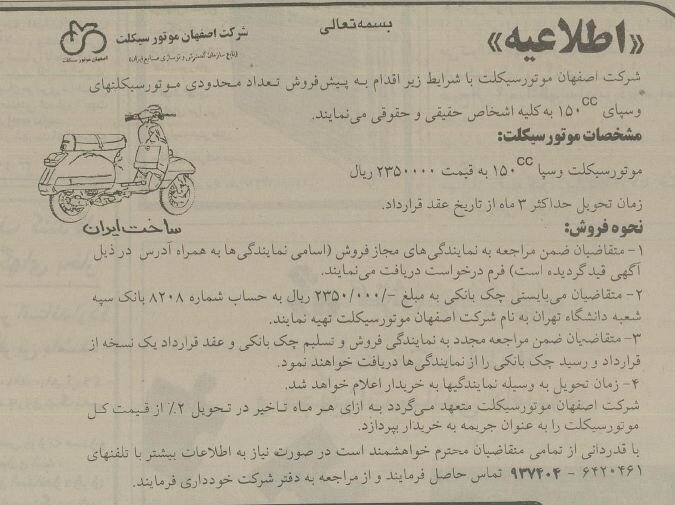 بسمه‌تعالی
«اطلاعیه»
شرکت اصفهان موتور سیکلت
(تابع سازمان گسترش و نوسازی صنایع ایران)
اصفهان موتور سیکلت
شرکت اصفهان موتورسیکلت با شرایط زیر اقدام به پیش‌فروش تعداد محدودی موتورسیکلتهای
وسپای ۱۵۰CC به کلیه اشخاص حقیقی و حقوقی می‌نمایند.
مشخصات موتور سیکلت:
موتورسیکلت وسپا ۱۵۰CC به قیمت ۲۳۵۰۰۰۰ ریال
زمان تحویل حداکثر ۳ ماه از تاریخ عقد قرارداد.
ساخت ایران
نحوه فروش:
۱- متقاضیان ضمن مراجعه به نمایندگی‌های مجاز فروش (اسامی نمایندگی‌ها به همراه آدرس در ذیل
آگهی قید گردیده است) فرم درخواست دریافت می‌نمایند.
۲- متقاضیان می‌بایستی چک بانکی به مبلغ -/۲۳۵۰/۰۰۰ ریال به حساب شماره ۸۲۰۸ بانک سپه
شعبه دانشگاه تهران به نام شرکت اصفهان موتورسیکلت تهیه نمایند.
۳- متقاضیان ضمن مراجعه مجدد به نمایندگی فروش و تسلیم چک بانکی و عقد قرارداد یک نسخه از
قرارداد و رسید چک بانکی را از نمایندگی‌ها دریافت خواهند نمود.
۴- زمان تحویل به وسیله نمایندگیها به خریدار اعلام خواهد شد.
شرکت اصفهان موتورسیکلت متعهد می‌گردد به ازای هر ماه تاخیر در تحویل ۲٪ از قیمت کل
موتورسیکلت را به عنوان جریمه به خریدار بپردازد.
با قدردانی از تمامی متقاضیان محترم خواهشمند است در صورت نیاز به اطلاعات بیشتر با تلفنهای
۶۴۲۰۴۶۱ - ۹۳۷۴۰۴ تماس حاصل فرمایند و از مراجعه به دفتر شرکت خودداری فرمایند.